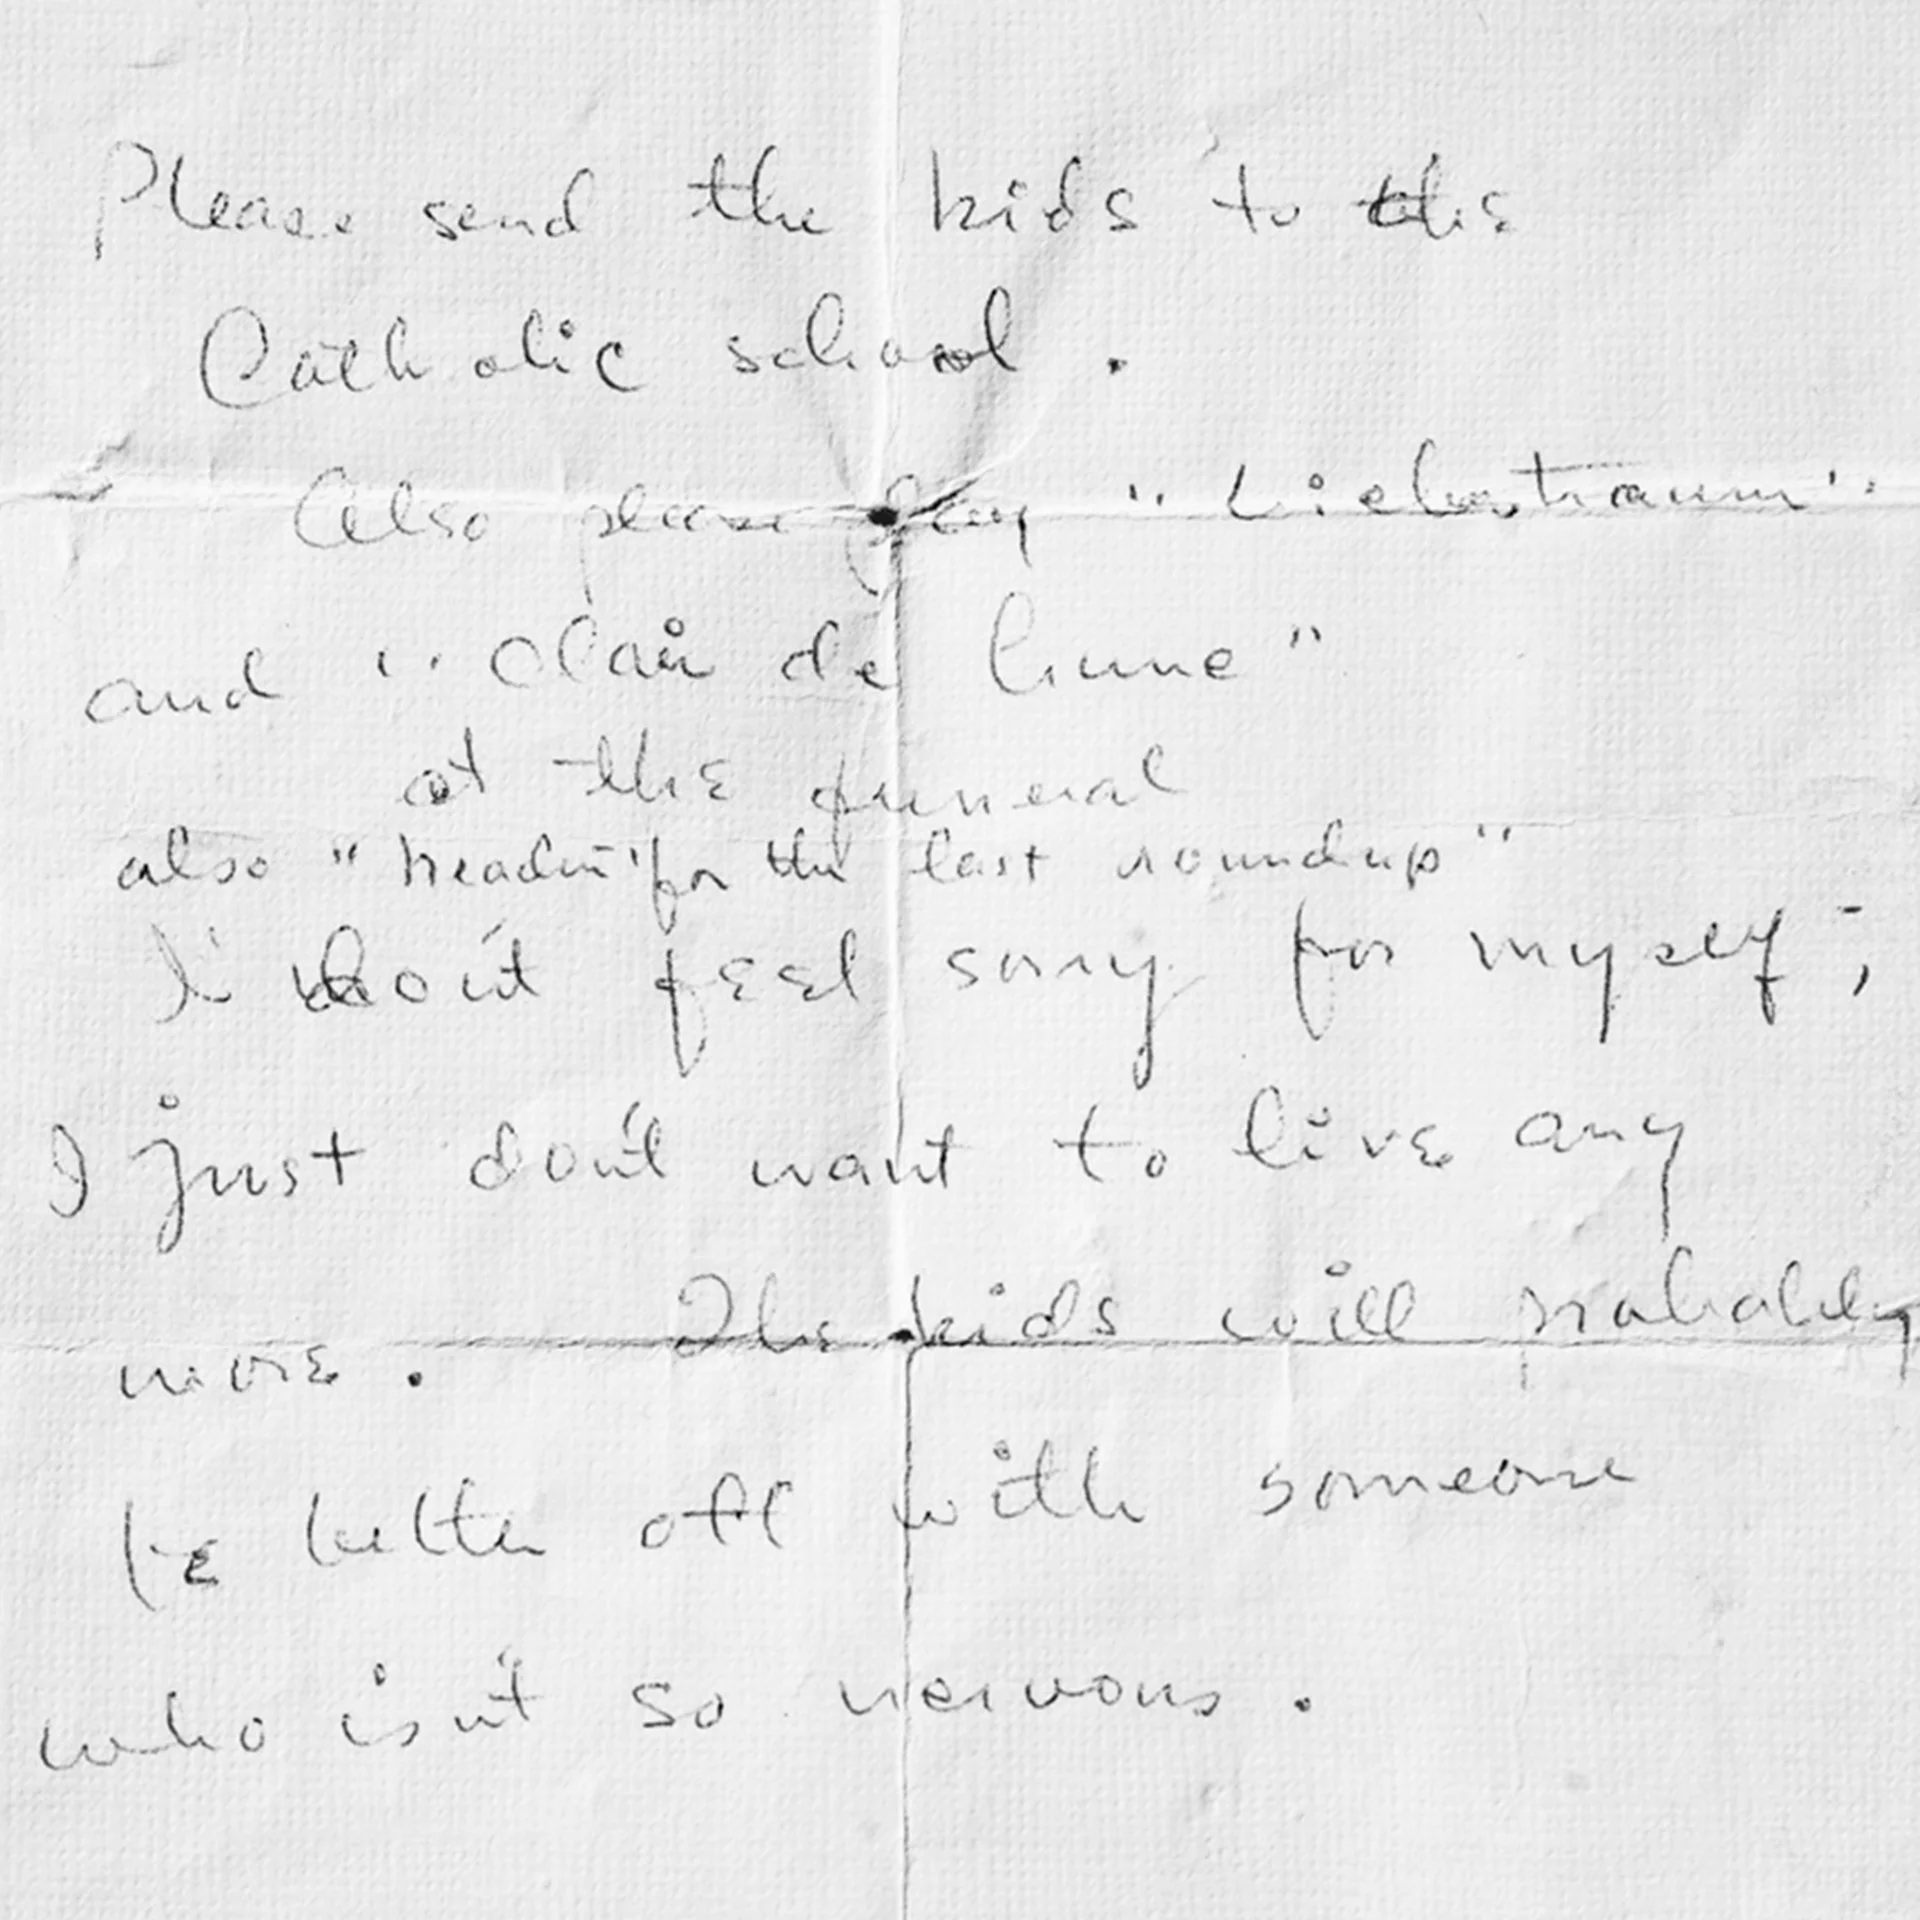 Please send the kids to the
Catholic school .
Also please play "Liebestraum"
and "Clair de lune"
at the funeral
also "headin' for the last roundup"
I don't feel sorry for myself ;
I just don't want to live any
more . The kids will probably
be better off with someone
who isn't so nervous .